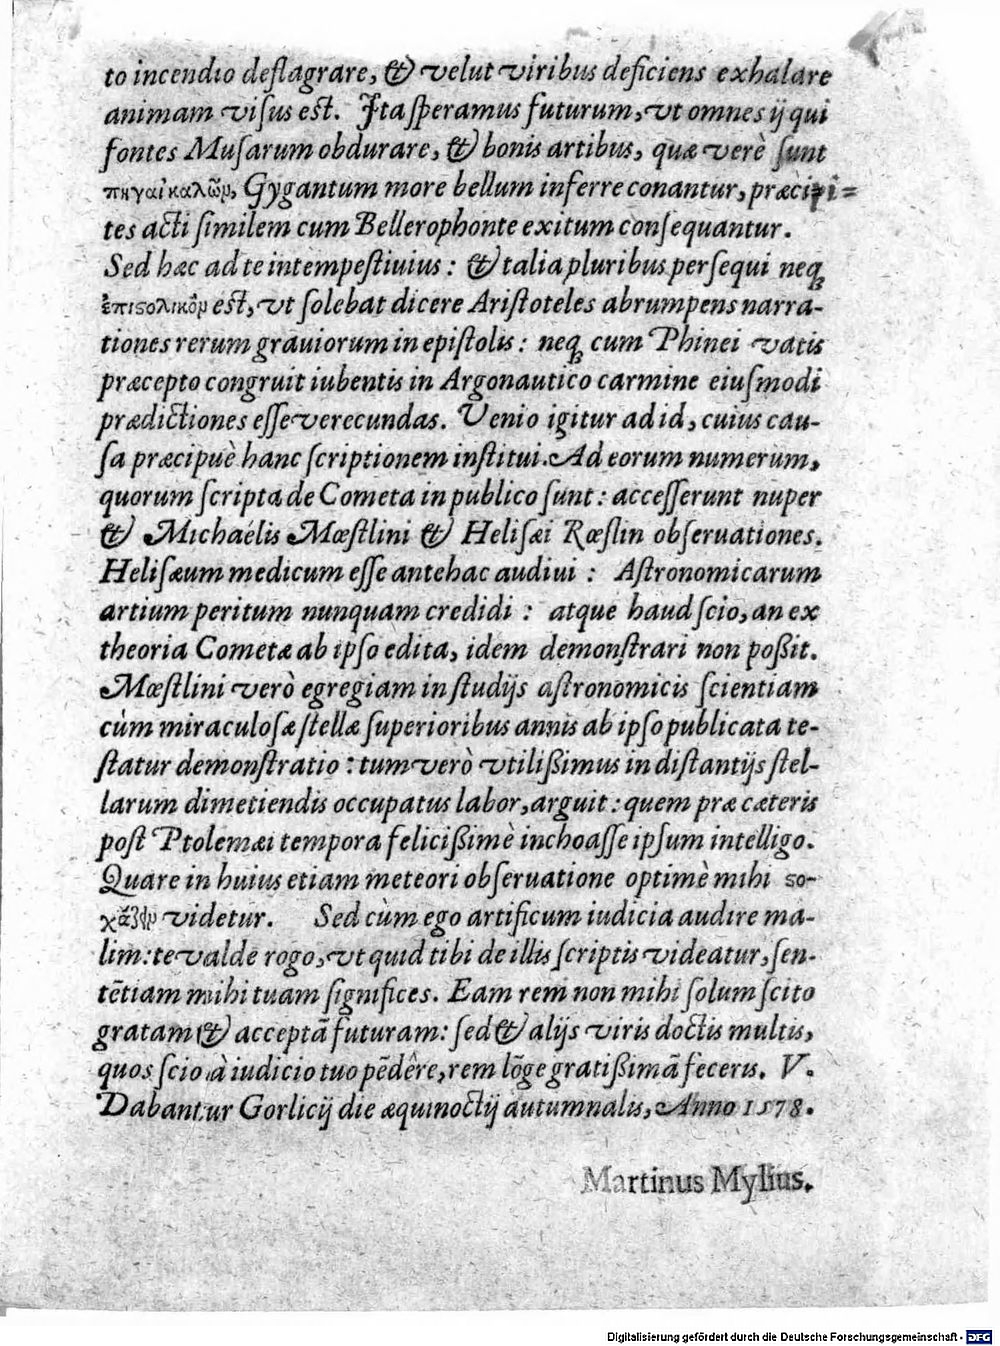 to incendio deflagrare, & velut viribus deficiens exhalare
animam visus est. Ita speramus futurum, vt omnes ij qui
fontes Musarum obdurare, & bonis artibus, quæ verè sunt
πηγαὶ καλῶν, Gygantum more bellum inferre conantur, præcipi=
tes acti similem cum Bellerophonte exitum consequantur.
Sed hæc ad te intempestiuius: & talia pluribus persequi neq;
ἐπιστολικὸν est, vt solebat dicere Aristoteles abrumpens narra-
tiones rerum grauiorum in epistolis: neq; cum Phinei vatis
præcepto congruit iubentis in Argonautico carmine eiusmodi
prædictiones esse verecundas. Venio igitur ad id, cuius cau-
sa præcipuè hanc scriptionem institui. Ad eorum numerum,
quorum scripta de Cometa in publico sunt: accesserunt nuper
& Michaëlis Mœstlini & Helisæi Rœslin obseruationes.
Helisæum medicum esse antehac audiui: Astronomicarum
artium peritum nunquam credidi: atque haud scio, an ex
theoria Cometæ ab ipso edita, idem demonstrari non poßit.
Mœstlini verò egregiam in studijs astronomicis scientiam
cùm miraculosæ stellæ superioribus annis ab ipso publicata te-
statur demonstratio: tum verò vtilißimus in distantijs stel-
larum dimetiendis occupatus labor, arguit: quem præ cæteris
post Ptolemæi tempora felicißimè inchoasse ipsum intelligo.
Quare in huius etiam meteori obseruatione optimè mihi στο-
χάζειν videtur. Sed cùm ego artificum iudicia audire ma-
lim: te valde rogo, vt quid tibi de illis scriptis videatur, sen-
tētiam mihi tuam significes. Eam rem non mihi solum scito
gratam & acceptā futuram: sed & alijs viris doctis multis,
quos scio à iudicio tuo pēdére, rem lōge gratißimā feceris. V.
Dabantur Gorlicij die æquinoctij autumnalis, Anno 1578.
Martinus Mylius.
Digitalisierung gefördert durch die Deutsche Forschungsgemeinschaft - DFG